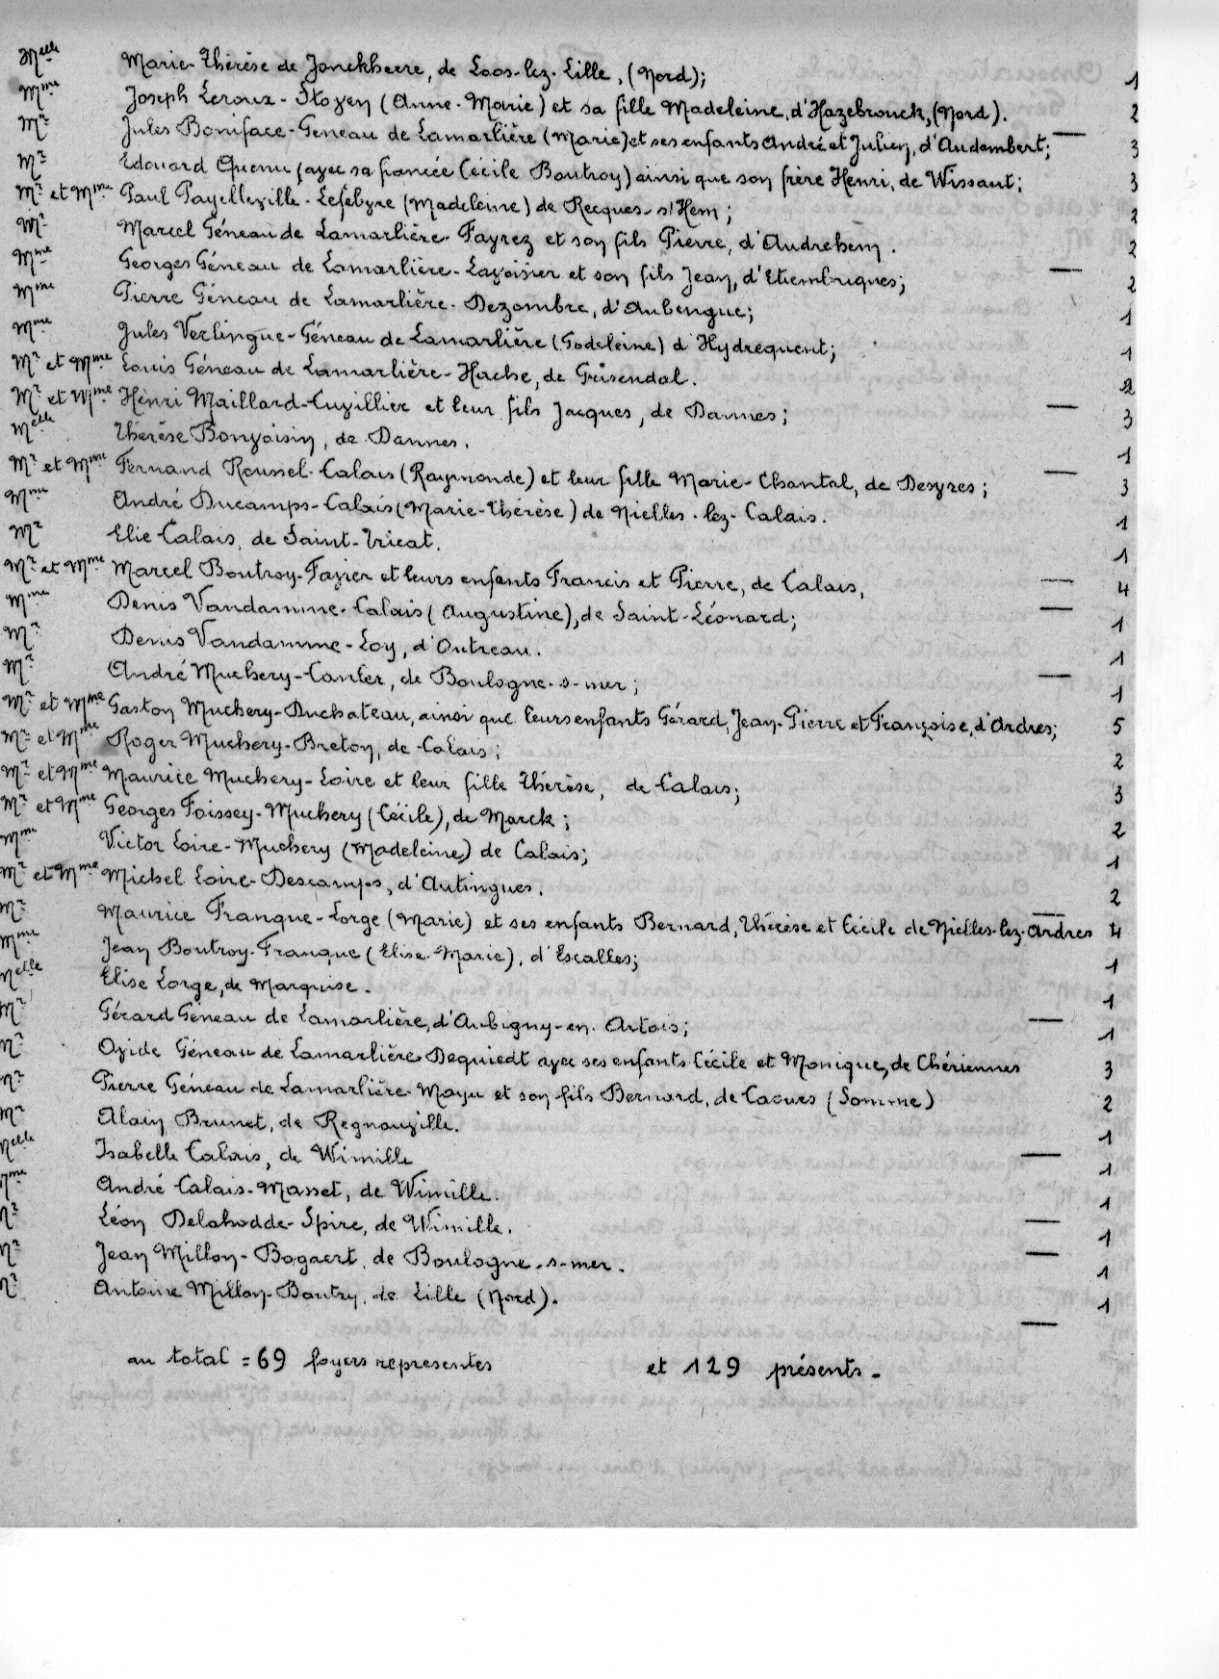 Melle Marie-Thérèse de Jonckheere, de Loos-lez-Lille, (Nord); 1
Mme Joseph Leroux-Stozen (Anne-Marie) et sa fille Madeleine, d'Hazebrouck, (Nord). 2
Mr Jules Boniface-Géneau de Lamarlière (Marie) et ses enfants André et Julien, d'Audembert; 3
Mr Edouard Quenu (avec sa fiancée Cécile Boutroy) ainsi que son frère Henri, de Wissant; 3
Mr et Mme Paul Payelleville-Lefebvre (Madeleine) de Recques-s/Hem; 2
Mr Marcel Géneau de Lamarlière-Fayrez et son fils Pierre, d'Audrehem. 2
Mme Georges Géneau de Lamarlière-Lavoisier et son fils Jean, d'Etiembriques; 2
Mme Pierre Géneau de Lamarlière-Dezombre, d'Aubengue; 1
Mme Jules Verlingue-Géneau de Lamarlière (Godeleine) d'Hydrequent; 1
Mr et Mme Louis Géneau de Lamarlière-Hache, de Grisendal. 2
Mr et Mme Henri Maillard-Cuvillier et leur fils Jacques, de Dannes; 3
Melle Thérèse Bonvoisin, de Dannes. 1
Mr et Mme Fernand Roussel-Calais (Raymonde) et leur fille Marie-Chantal, de Desvres; 3
Mme André Ducamps-Calais (Marie-Thérèse) de Nielles-lez-Calais. 1
Mr Elie Calais, de Saint-Tricat. 1
Mr et Mme Marcel Boutroy-Favier et leurs enfants Francis et Pierre, de Calais, 4
Mme Denis Vandamme-Calais (Augustine), de Saint-Léonard; 1
Mr Denis Vandamme-Loy, d'Outreau. 1
Mr André Muchery-Canler, de Boulogne-s-mer; 1
Mr et Mme Gaston Muchery-Duchateau, ainsi que leurs enfants Gérard, Jean-Pierre et Françoise, d'Ardres; 5
Mr et Mme Roger Muchery-Breton, de Calais; 2
Mr et Mme Maurice Muchery-Loire et leur fille Thérèse, de Calais; 3
Mr et Mme Georges Foissey-Muchery (Cécile), de Marck; 2
Mme Victor Loire-Muchery (Madeleine) de Calais; 1
Mr et Mme Michel Loire-Descamps, d'Autingues. 2
Mr Maurice Franque-Lorge (Marie) et ses enfants Bernard, Thérèse et Cécile de Nielles-lez-Ardres 4
Mme Jean Boutroy-Franque (Elise-Marie), d'Escalles; 1
Melle Elise Lorge, de Marquise. 1
Mr Gérard Géneau de Lamarlière, d'Aubigny-en-Artois; 1
Mr Ovide Géneau de Lamarlière-Dequiedt avec ses enfants Cécile et Monique, de Chériennes 3
Mr Pierre Géneau de Lamarlière-Mayu et son fils Bernard, de Caours (Somme) 2
Mr Alain Brunet, de Regnauville. 1
Melle Isabelle Calais, de Wimille 1
Mme André Calais-Masset, de Wimille. 1
Mr Léon Delahodde-Spire, de Wimille. 1
Mr Jean Millon-Bogaert, de Boulogne-s-mer. 1
Mr Antoine Millon-Bautry, de Lille (Nord). 1
au total = 69 foyers representes et 129 présents.